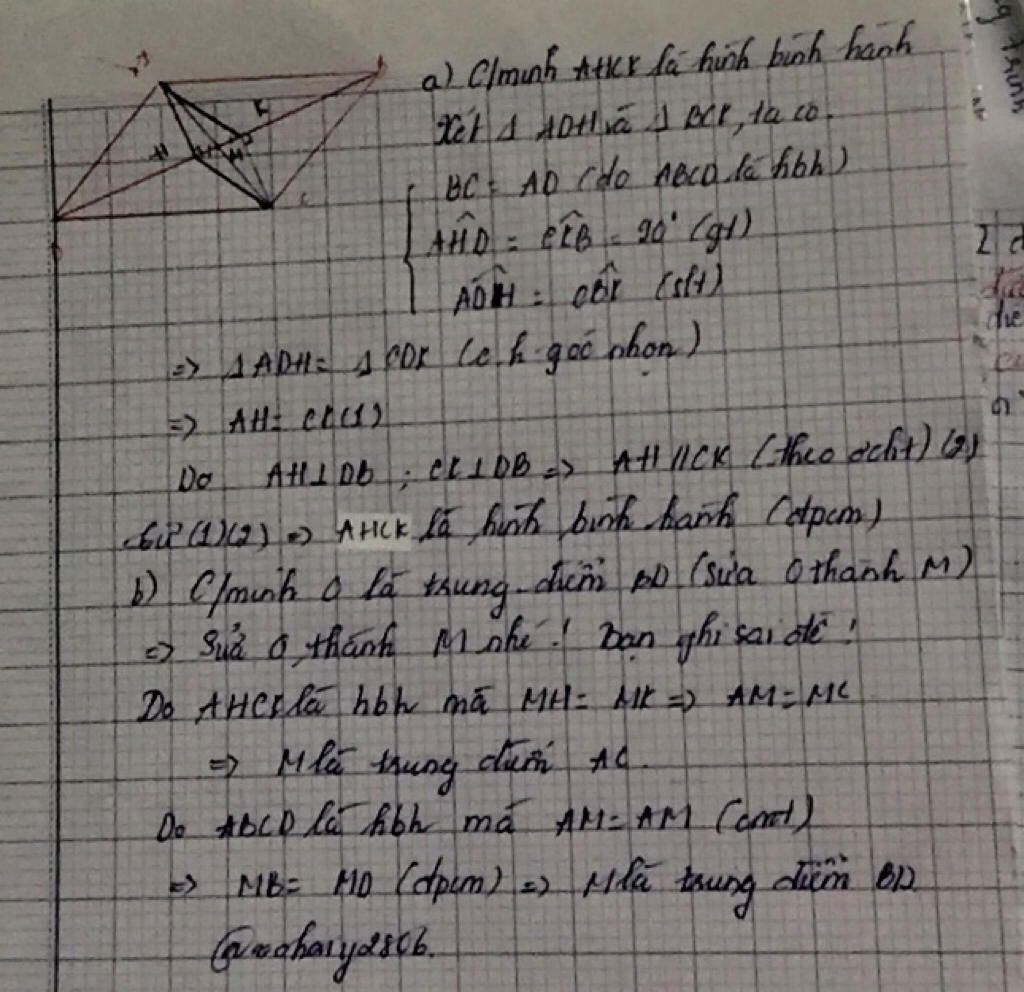 a) C/minh AHCK là hình bình hành
Xét Δ ADH và Δ BCK, ta có.
BC = AD (do ABCD là hbh)
AĤD = CK̂B = 90° (gt)
AD̂H = CB̂K (slt)
=> Δ ADH = Δ CDK (c h - góc nhọn)
=> AH = CK (1)
Do AH ⊥ DB ; CK ⊥ DB => AH // CK (theo đcht) (2)
Từ (1)(2) => AHCK là hình bình hành (đpcm)
b) C/minh O là trung điểm BD (sửa O thành M)
=> Sửa O thành M nhé! Bạn ghi sai đề!
Do AHCK là hbh mà MH = MK => AM = MC
=> M là trung điểm AC.
Do ABCD là hbh mà AM = AM (cmt)
=> MB = MD (đpcm) => M là trung điểm BD.